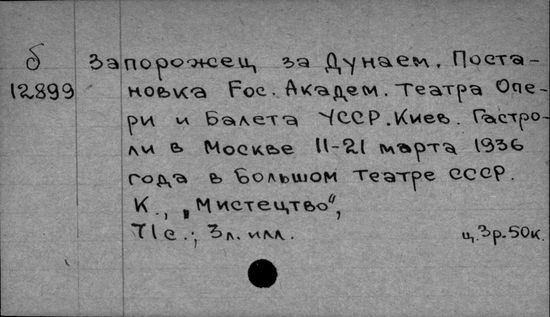 б
12899
Запорожец за Дунаем. Поста-
новка Гос. Академ. Театра Опе-
ри и Балета УССР. Киев. Гастро-
ли в Москве 11-21 марта 1936
года в Большом театре СССР.
К., „Мистецтво",
71с.; 3л. илл.
ц. 3р. 50к.